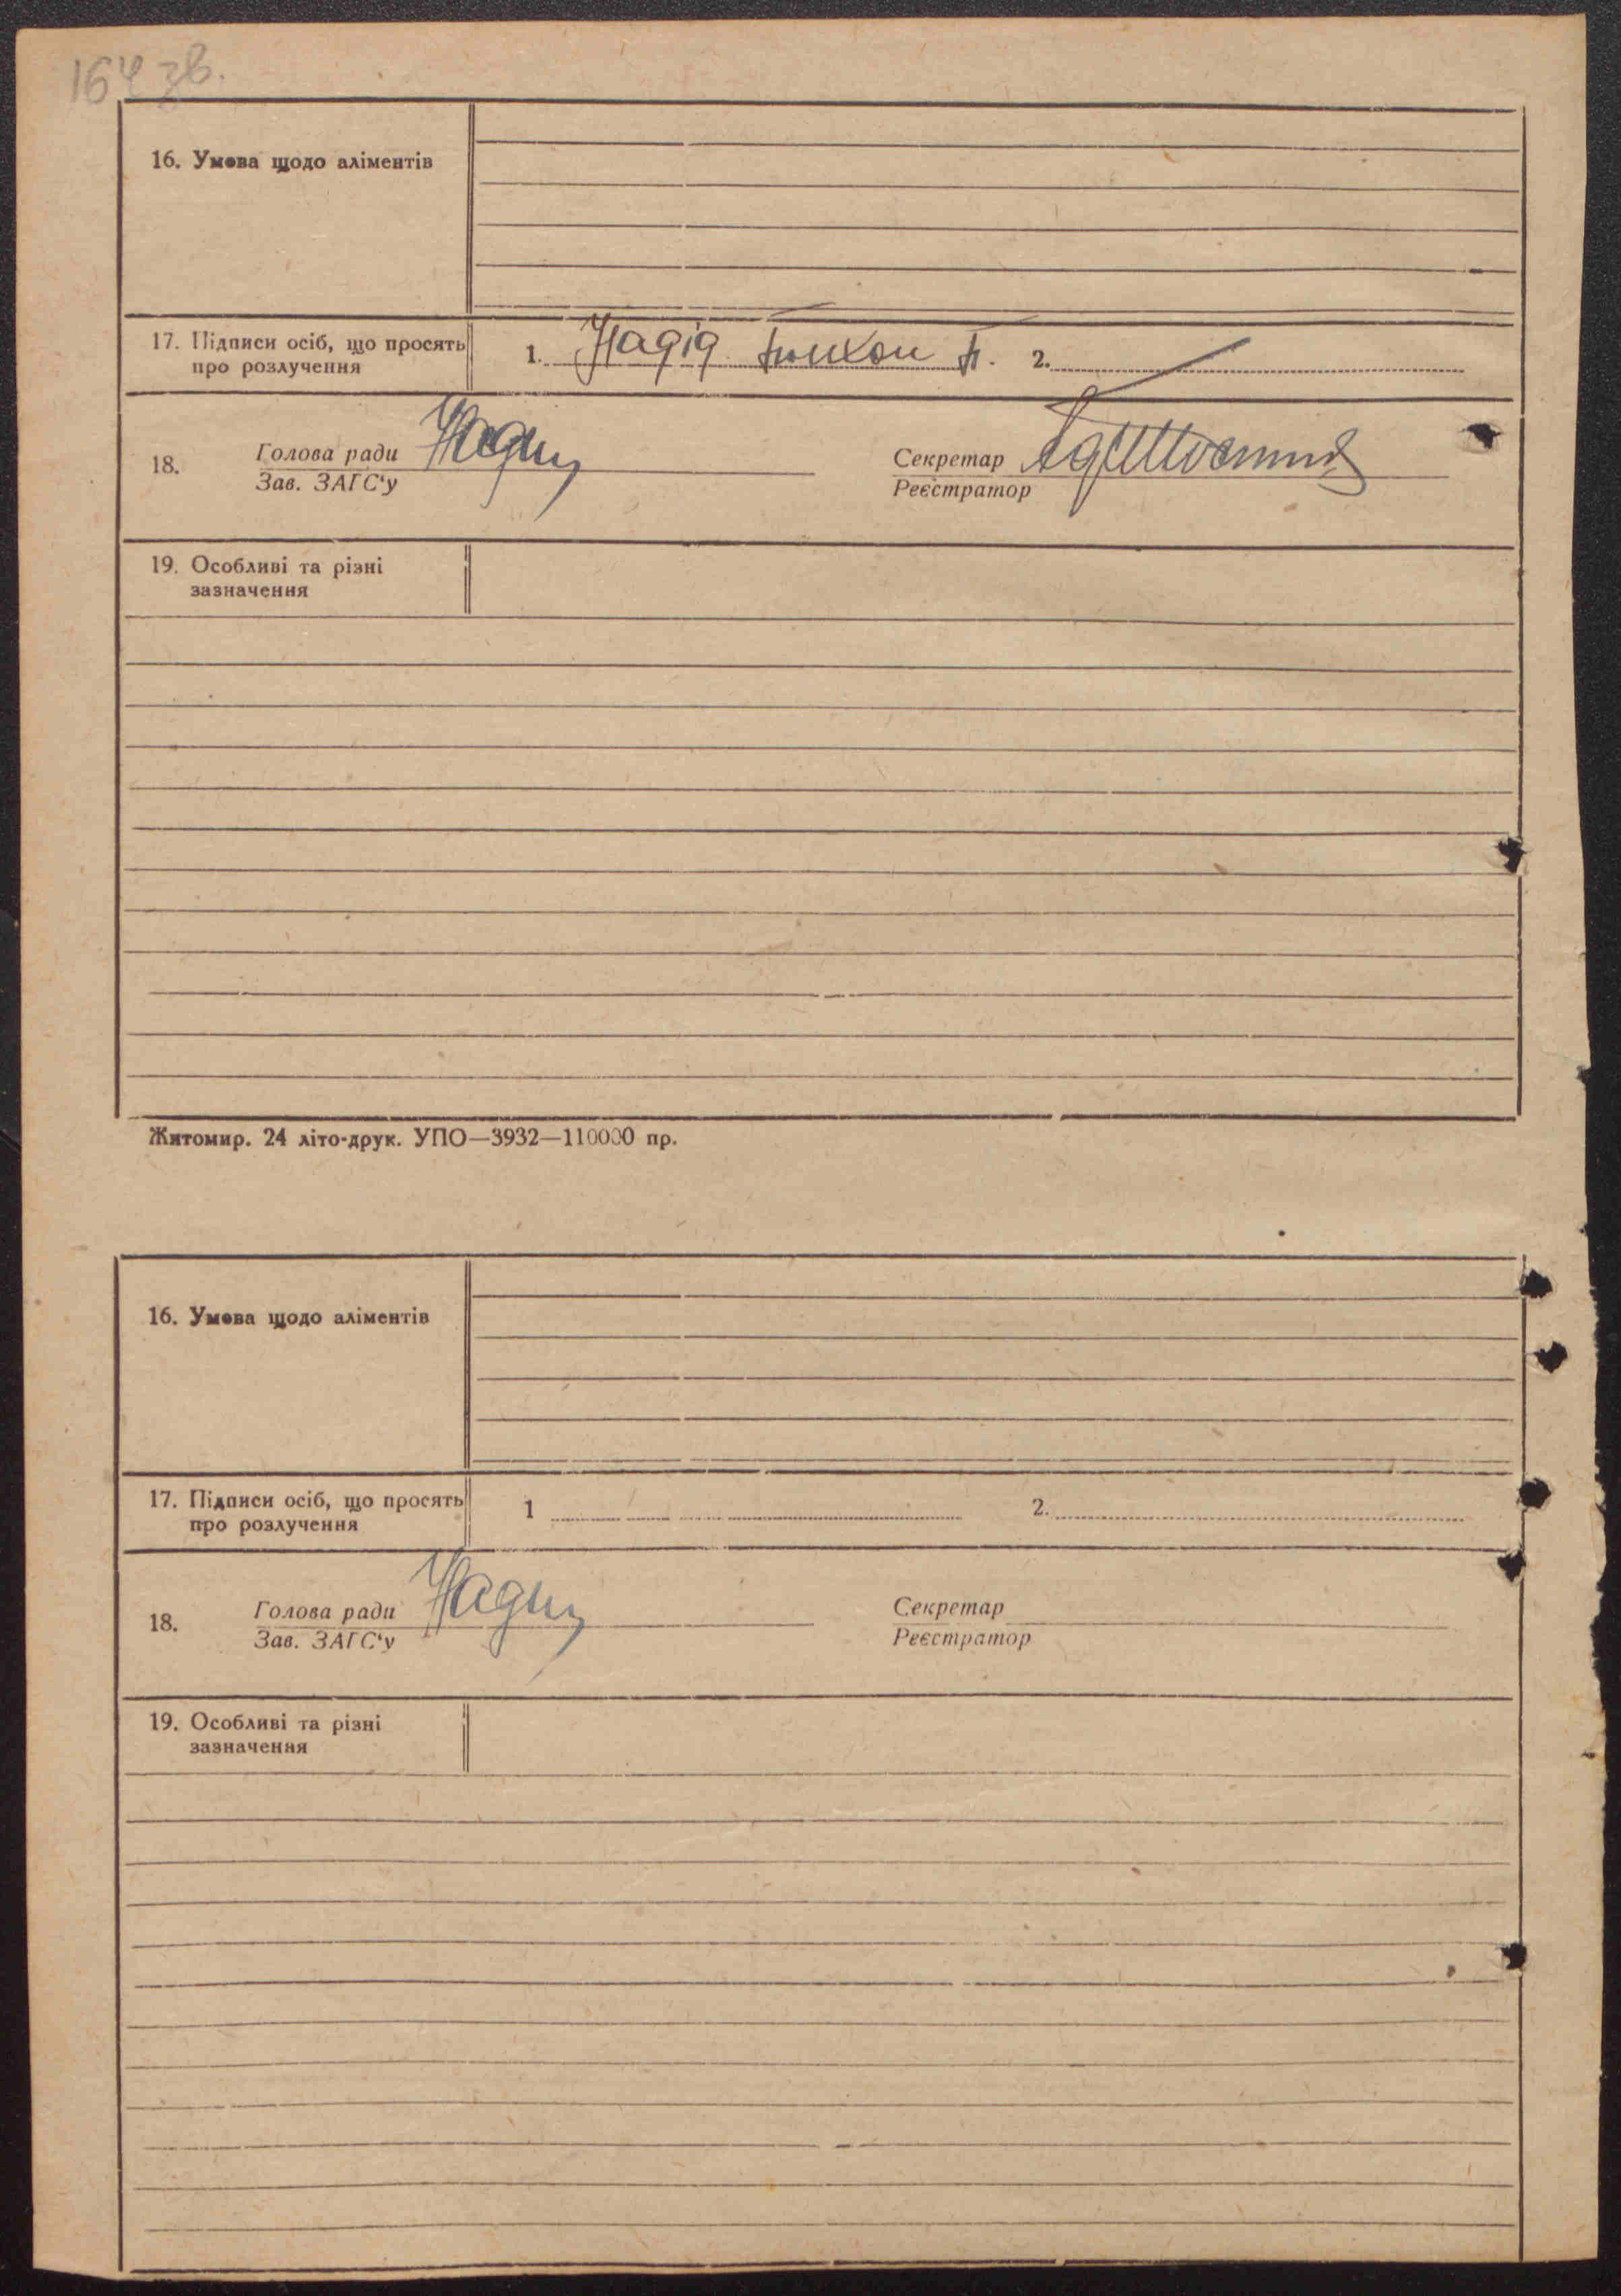 164 зв.
16. Умова щодо аліментів
17. Підписи осіб, що просять
про розлучення
1. Надід Тихон П. 2.
18.
Голова ради
Зав. ЗАГС'у
Секретар
Реєстратор
19. Особливі та різні
зазначення
Житомир. 24 літо-друк. УПО—3932—110000 пр.
16. Умова щодо аліментів
17. Підписи осіб, що просять
про розлучення
1 2.
18.
Голова ради
Зав. ЗАГС'у
Секретар
Реєстратор
19. Особливі та різні
зазначення